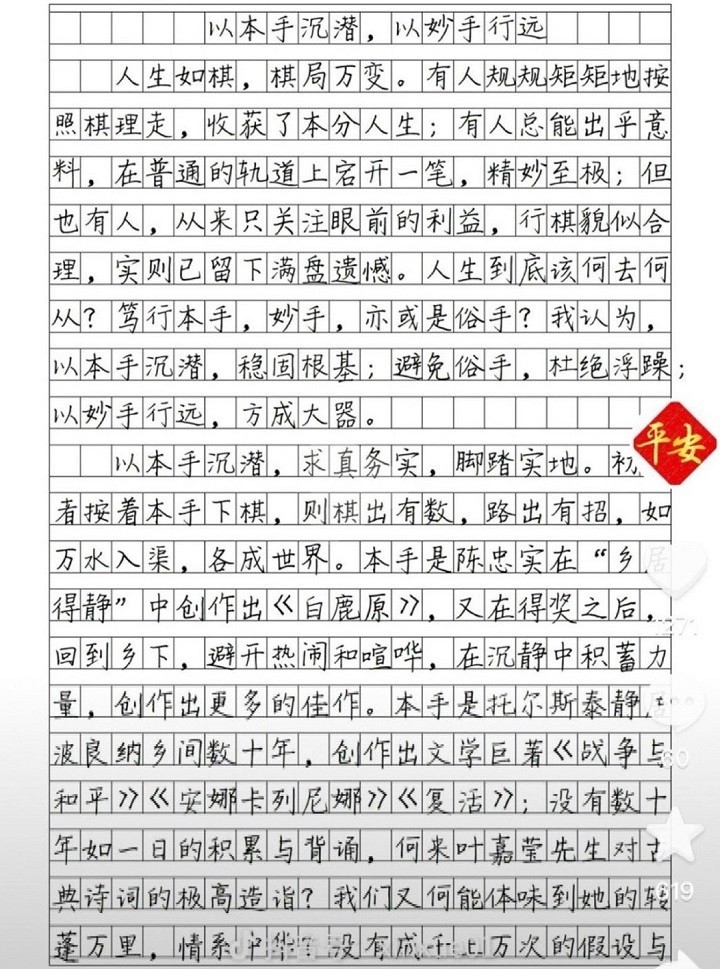 以本手沉潜，以妙手行远
人生如棋，棋局万变。有人规规矩矩地按
照棋理走，收获了本分人生；有人总能出乎意
料，在普通的轨道上宕开一笔，精妙至极；但
也有人，从来只关注眼前的利益，行棋貌似合
理，实则已留下满盘遗憾。人生到底该何去何
从？笃行本手，妙手，亦或是俗手？我认为，
以本手沉潜，稳固根基；避免俗手，杜绝浮躁；
以妙手行远，方成大器。
平安
以本手沉潜，求真务实，脚踏实地。初
者按着本手下棋，则棋出有数，路出有招，如
万水入渠，各成世界。本手是陈忠实在“乡居
得静”中创作出《白鹿原》，又在得奖之后，
1271
回到乡下，避开热闹和喧哗，在沉静中积蓄力
量，创作出更多的佳作。本手是托尔斯泰静居
60
波良纳乡间数十年，创作出文学巨著《战争与
和平》《安娜卡列尼娜》《复活》；没有数十
年如一日的积累与背诵，何来叶嘉莹先生对古
619
典诗词的极高造诣？我们又何能体味到她的转
蓬万里，情系中华？没有成千上万次的假设与